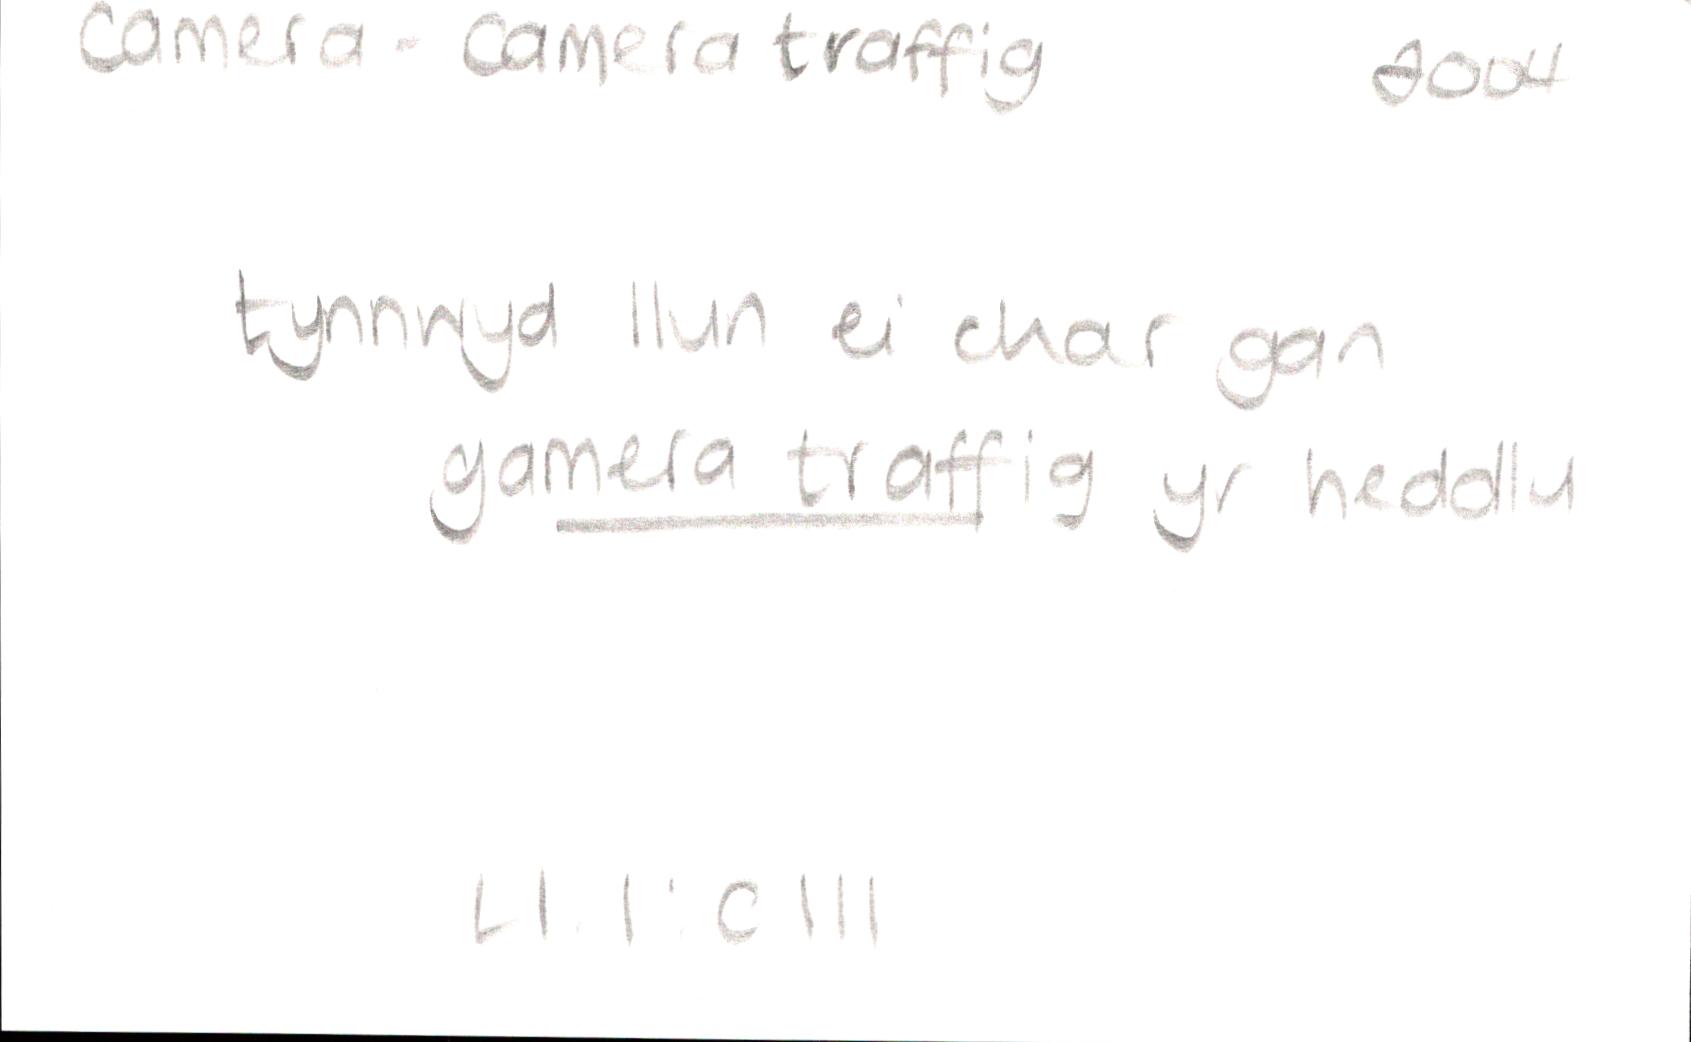 camera - camera traffig 2004
tynnwyd llun ei char gan
gamera traffig yr heddlu
Ll. 1: C 111